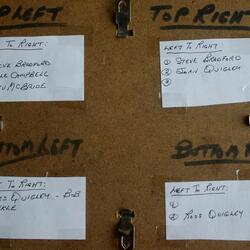 TOP LEFT
TOP RIGHT
LEFT TO RIGHT:
STEVE BRADFORD
CAMPBELL
McBRIDE
LEFT TO RIGHT:
① STEVE BRADFORD
② JOHN QUIGLEY
③
BOTTOM LEFT
BOTTOM
LEFT TO RIGHT:
ROSS QUIGLEY - BOB
LEFT TO RIGHT:
①
② ROSS QUIGLEY